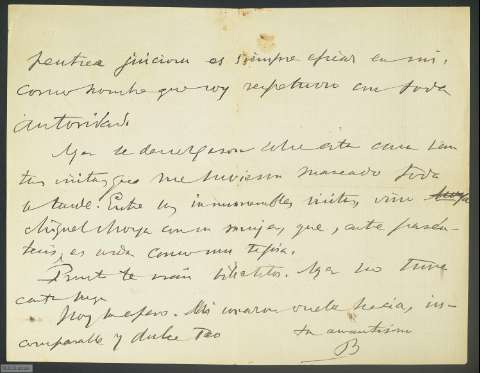 juiciosa es siempre eficaz en mí,
como hombre que soy respetuoso con toda
autoridad.
Ayer se descolgaron sobre esta casa tan
tas visitas que me tuvieron mareado toda
la tarde. Entre las innumerables visitas, vino
Miguel Moya con su mujer, que, ante parén-
tesis, es sorda como una tapia.
Pronto te irán billetitos. Ayer no tuve
carta tuya
Hoy la espero. Mi corazón vuela hacia ti, in-
comparable y dulce Teo tu amantísimo
B